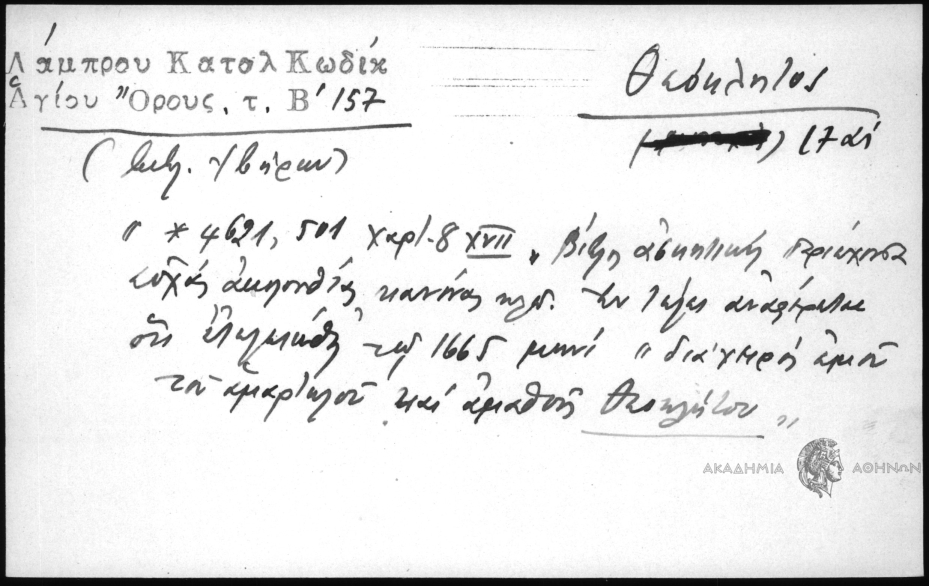 Λάμπρου Κατολ Κωδίκ
Ἁγίου Ὄρους, τ. Β΄ 157
Θεόκλητος
17 αἰ
(Βιβλ. Ἰβήρων)
" * 4621, 501 χαρτ. 8 XVII " Βίβλος ἀσκητικὴ περιέχουσα
εὐχάς ἀκολουθίας κανόνας κλπ. ἐν τέλει ἀναφέρεται
ὅτι ἐτελειώθη τῷ 1665 μηνί " διὰ χειρός ἐμοῦ
τοῦ ἁμαρτωλοῦ καί ἀμαθοῦς Θεοκλήτου "
ΑΚΑΔΗΜΙΑ ΑΘΗΝΩΝ